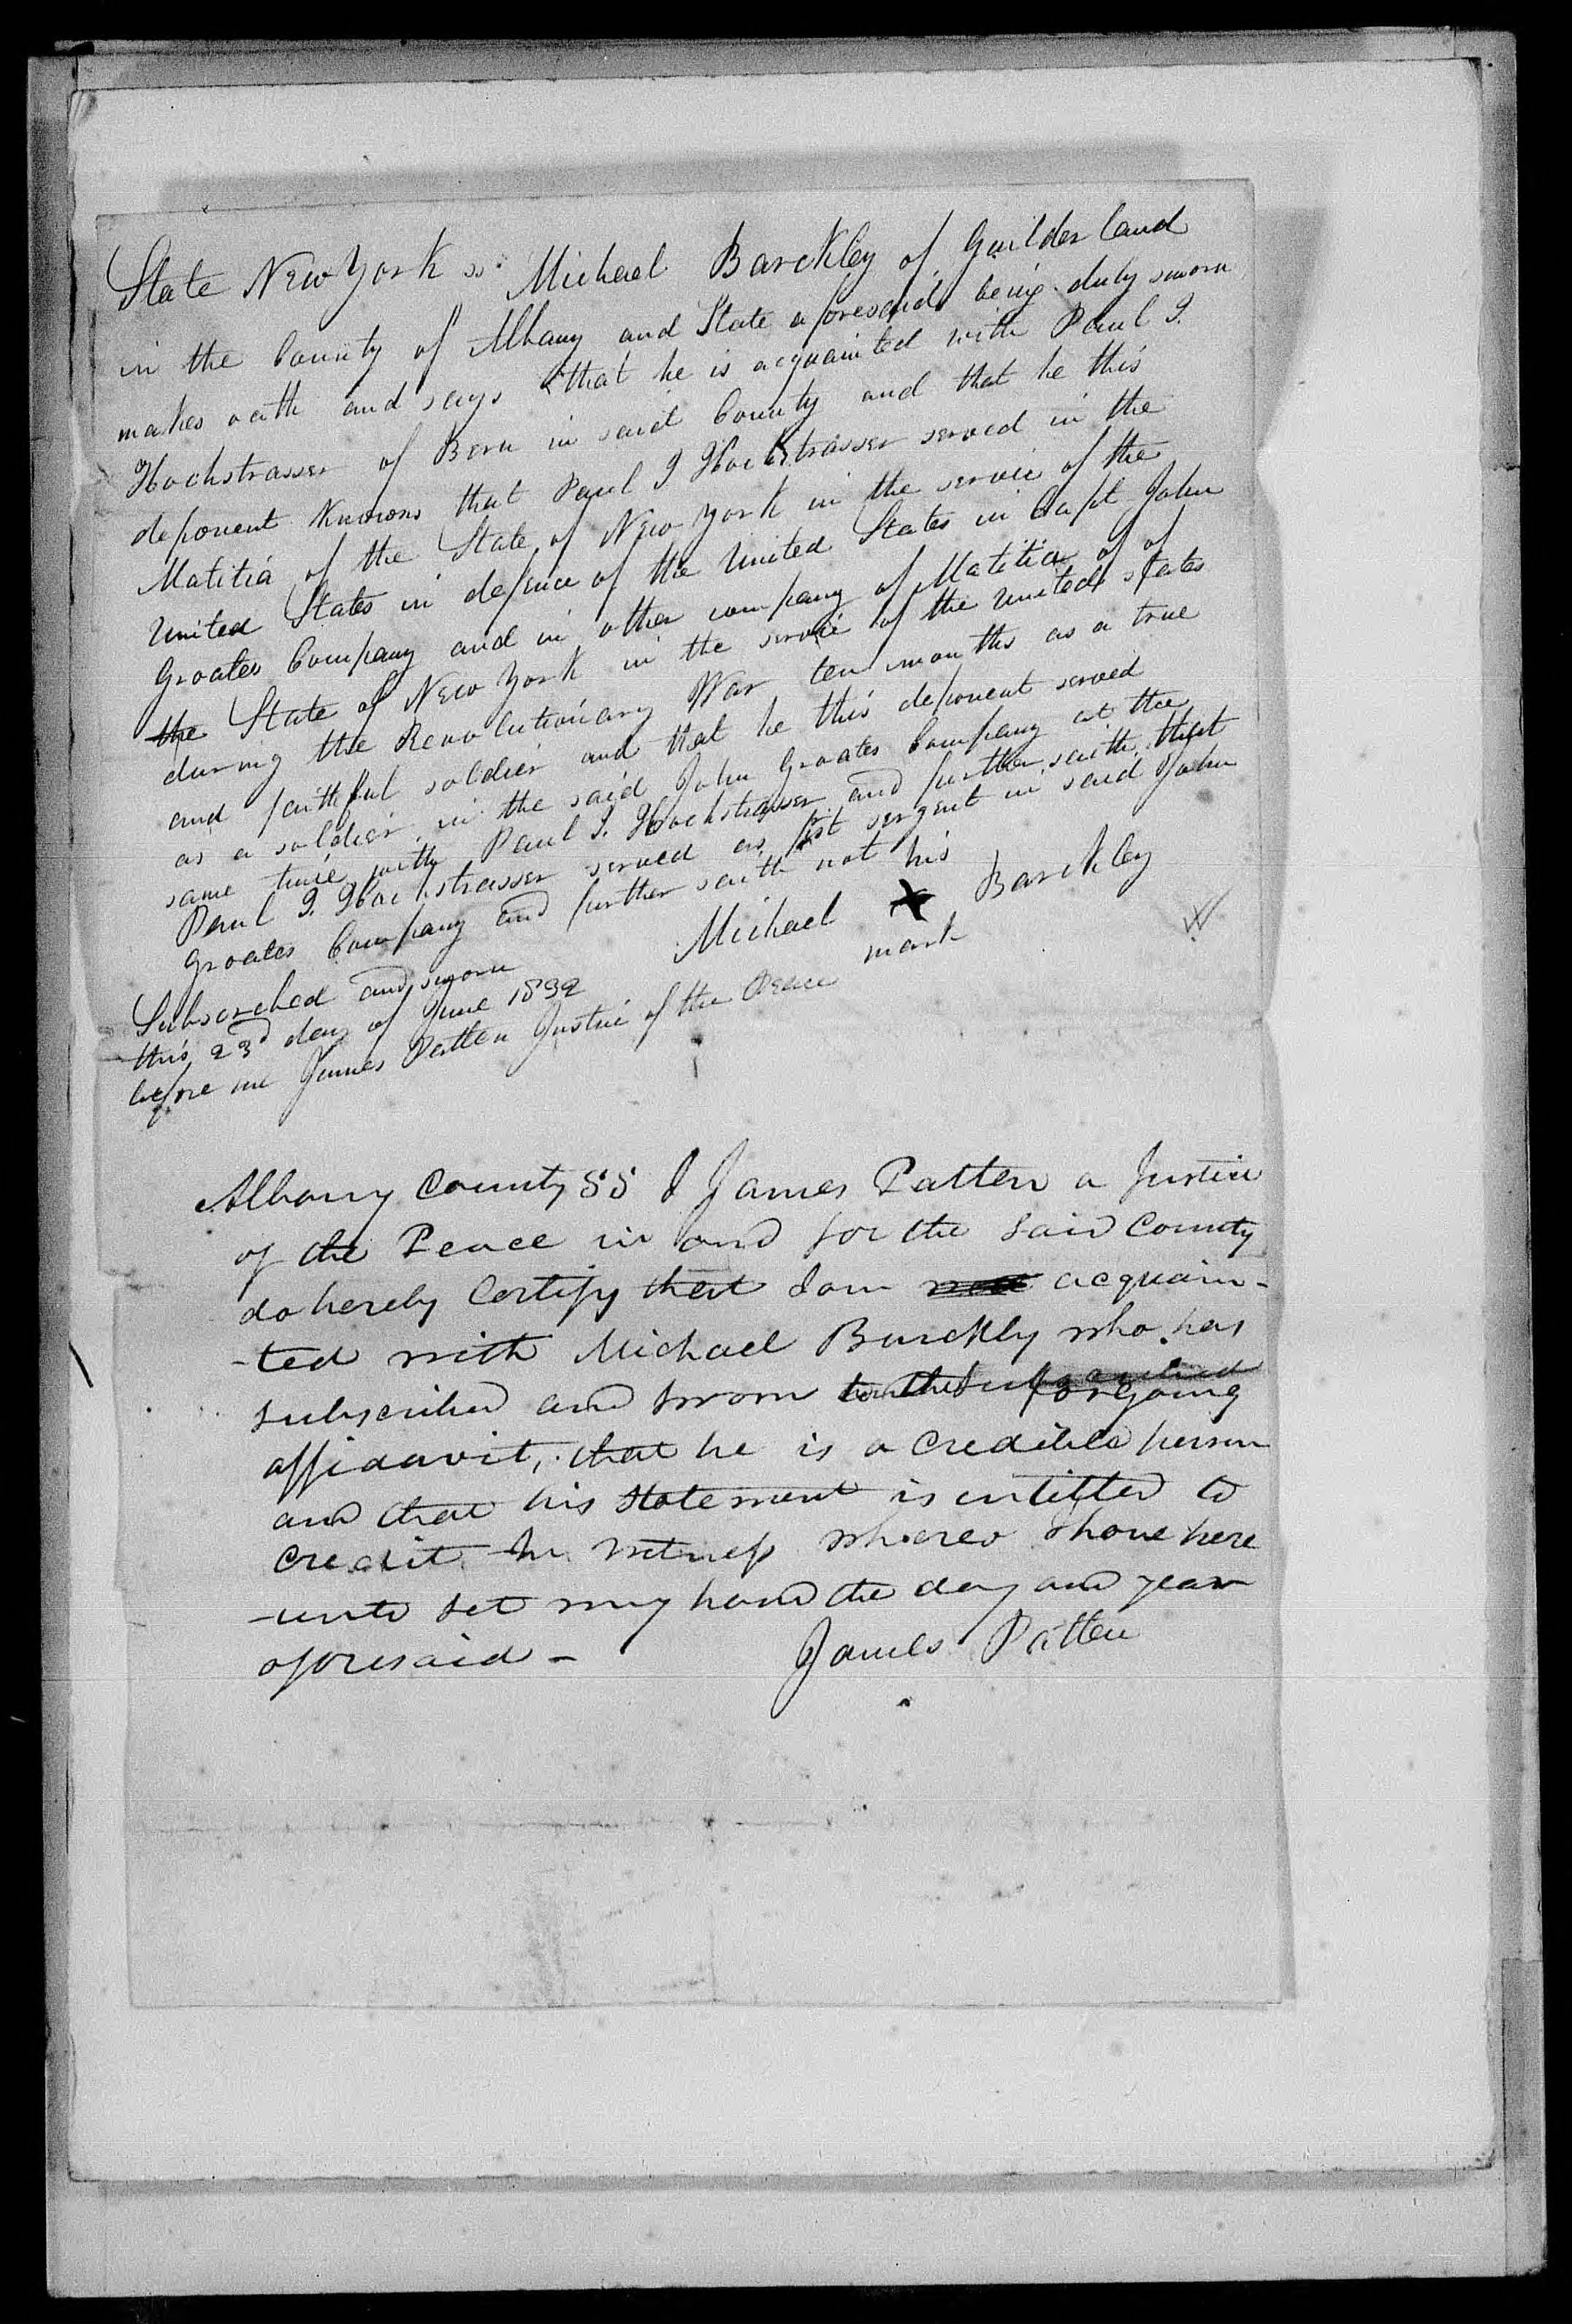 State New York ss. Michael Barckley of Guilderland
in the County of Albany and State aforesaid being duly sworn
makes oath and says that he is acquainted with Paul I.
Hochstrasser of Bern in said County and that he this
deponent knows that Paul I Hochstrasser served in the
Malitia of the State of New York in the servic of the
United States in defence of the United States in Capt John
Groates Company and in other company of Malitia of of
the State of New York in the servic of the United States
during the Revolutionary War ten months as a true
and faithful soldier and that he this deponent served
as a soldier in the said John Groates Company at the
same time with Paul I. Hochstrasser and further saith that
Paul I. Hochstrasser served as 1st sergent in said John
Groates Company and further saith not his
Michael X Barckley
mark
Subscribed and sworn
this 23d day of June 1832
before me James Patten Justice of the Peace
Albany County SS I James Patten a Justice
of the Peace in and for the Said County
do hereby Certify that I am acquain-
-ted with Michael Barckly who has
subscribed and sworn to the forgoing
affidavit, that he is a Credible person
and that his statement is intitled to
Credit In witness whereo I have here
-unto set my hand the day and year
aforesaid -
James Patten